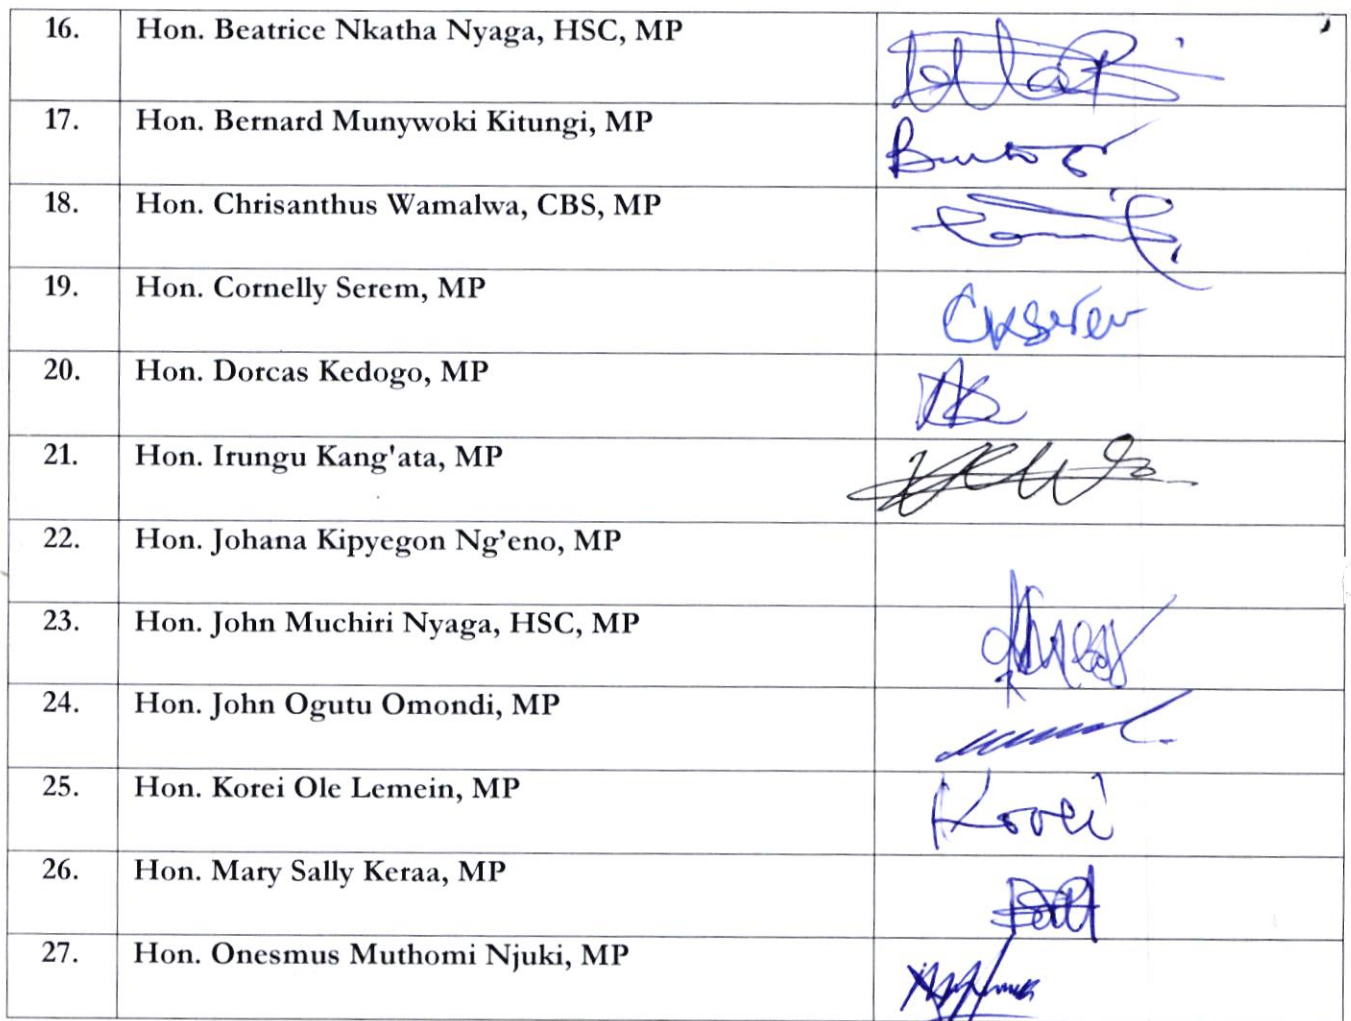 16. Hon. Beatrice Nkatha Nyaga, HSC, MP
17. Hon. Bernard Munywoki Kitungi, MP
18. Hon. Chrisanthus Wamalwa, CBS, MP
19. Hon. Cornelly Serem, MP CKSerem
20. Hon. Dorcas Kedogo, MP
21. Hon. Irungu Kang'ata, MP
22. Hon. Johana Kipyegon Ng’eno, MP
23. Hon. John Muchiri Nyaga, HSC, MP
24. Hon. John Ogutu Omondi, MP
25. Hon. Korei Ole Lemein, MP Korei
26. Hon. Mary Sally Keraa, MP
27. Hon. Onesmus Muthomi Njuki, MP